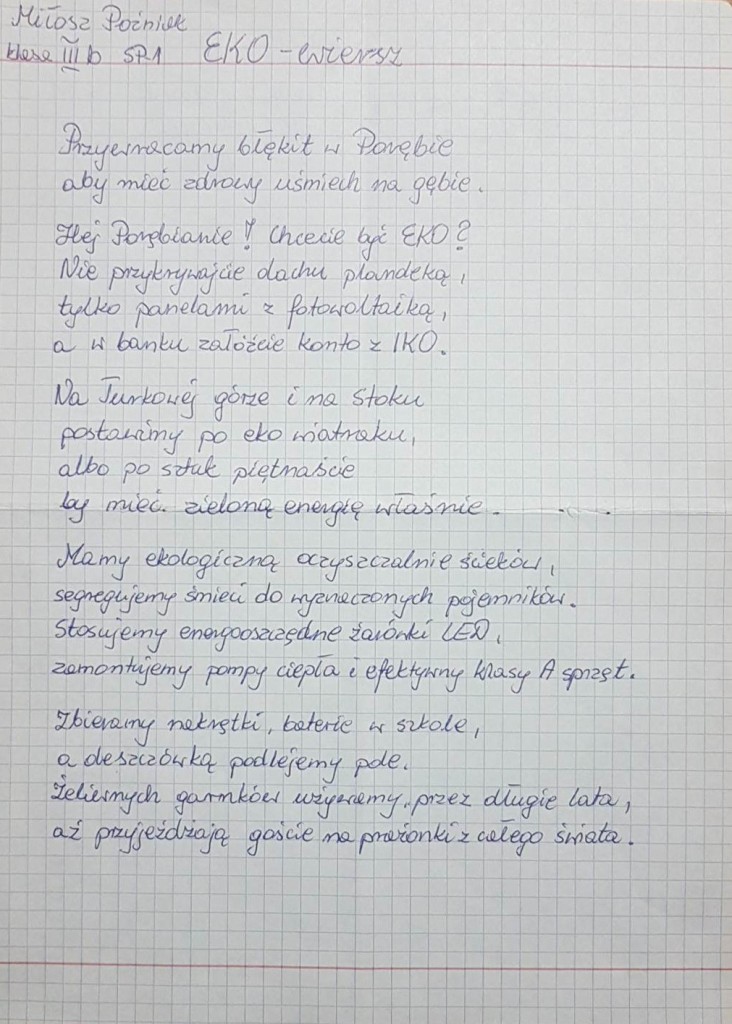 Miłosz Poźniak
klasa III b SP1 EKO-wiersz
Przywracamy błękit w Porębie
aby mieć zdrowy uśmiech na gębie.
Hej Porębianie! Chcecie być EKO?
Nie przykrywajcie dachu plandeką,
tylko panelami z fotowoltaiką,
a w banku załóżcie konto z IKO.
Na Turkowej górze i na Stoku
postawimy po eko wiatraku,
albo po sztuk piętnaście
by mieć zieloną energię właśnie.
Mamy ekologiczną oczyszczalnie ścieków,
segregujemy śmieci do wyznaczonych pojemników.
Stosujemy energooszczędne żarówki LED,
zamontujemy pompy ciepła i efektywny klasy A sprzęt.
Zbieramy nakrętki, baterie w szkole,
a deszczówką podlejemy pole.
Żeliwnych garnków używamy przez długie lata,
aż przyjeżdżają goście na prażonki z całego świata.